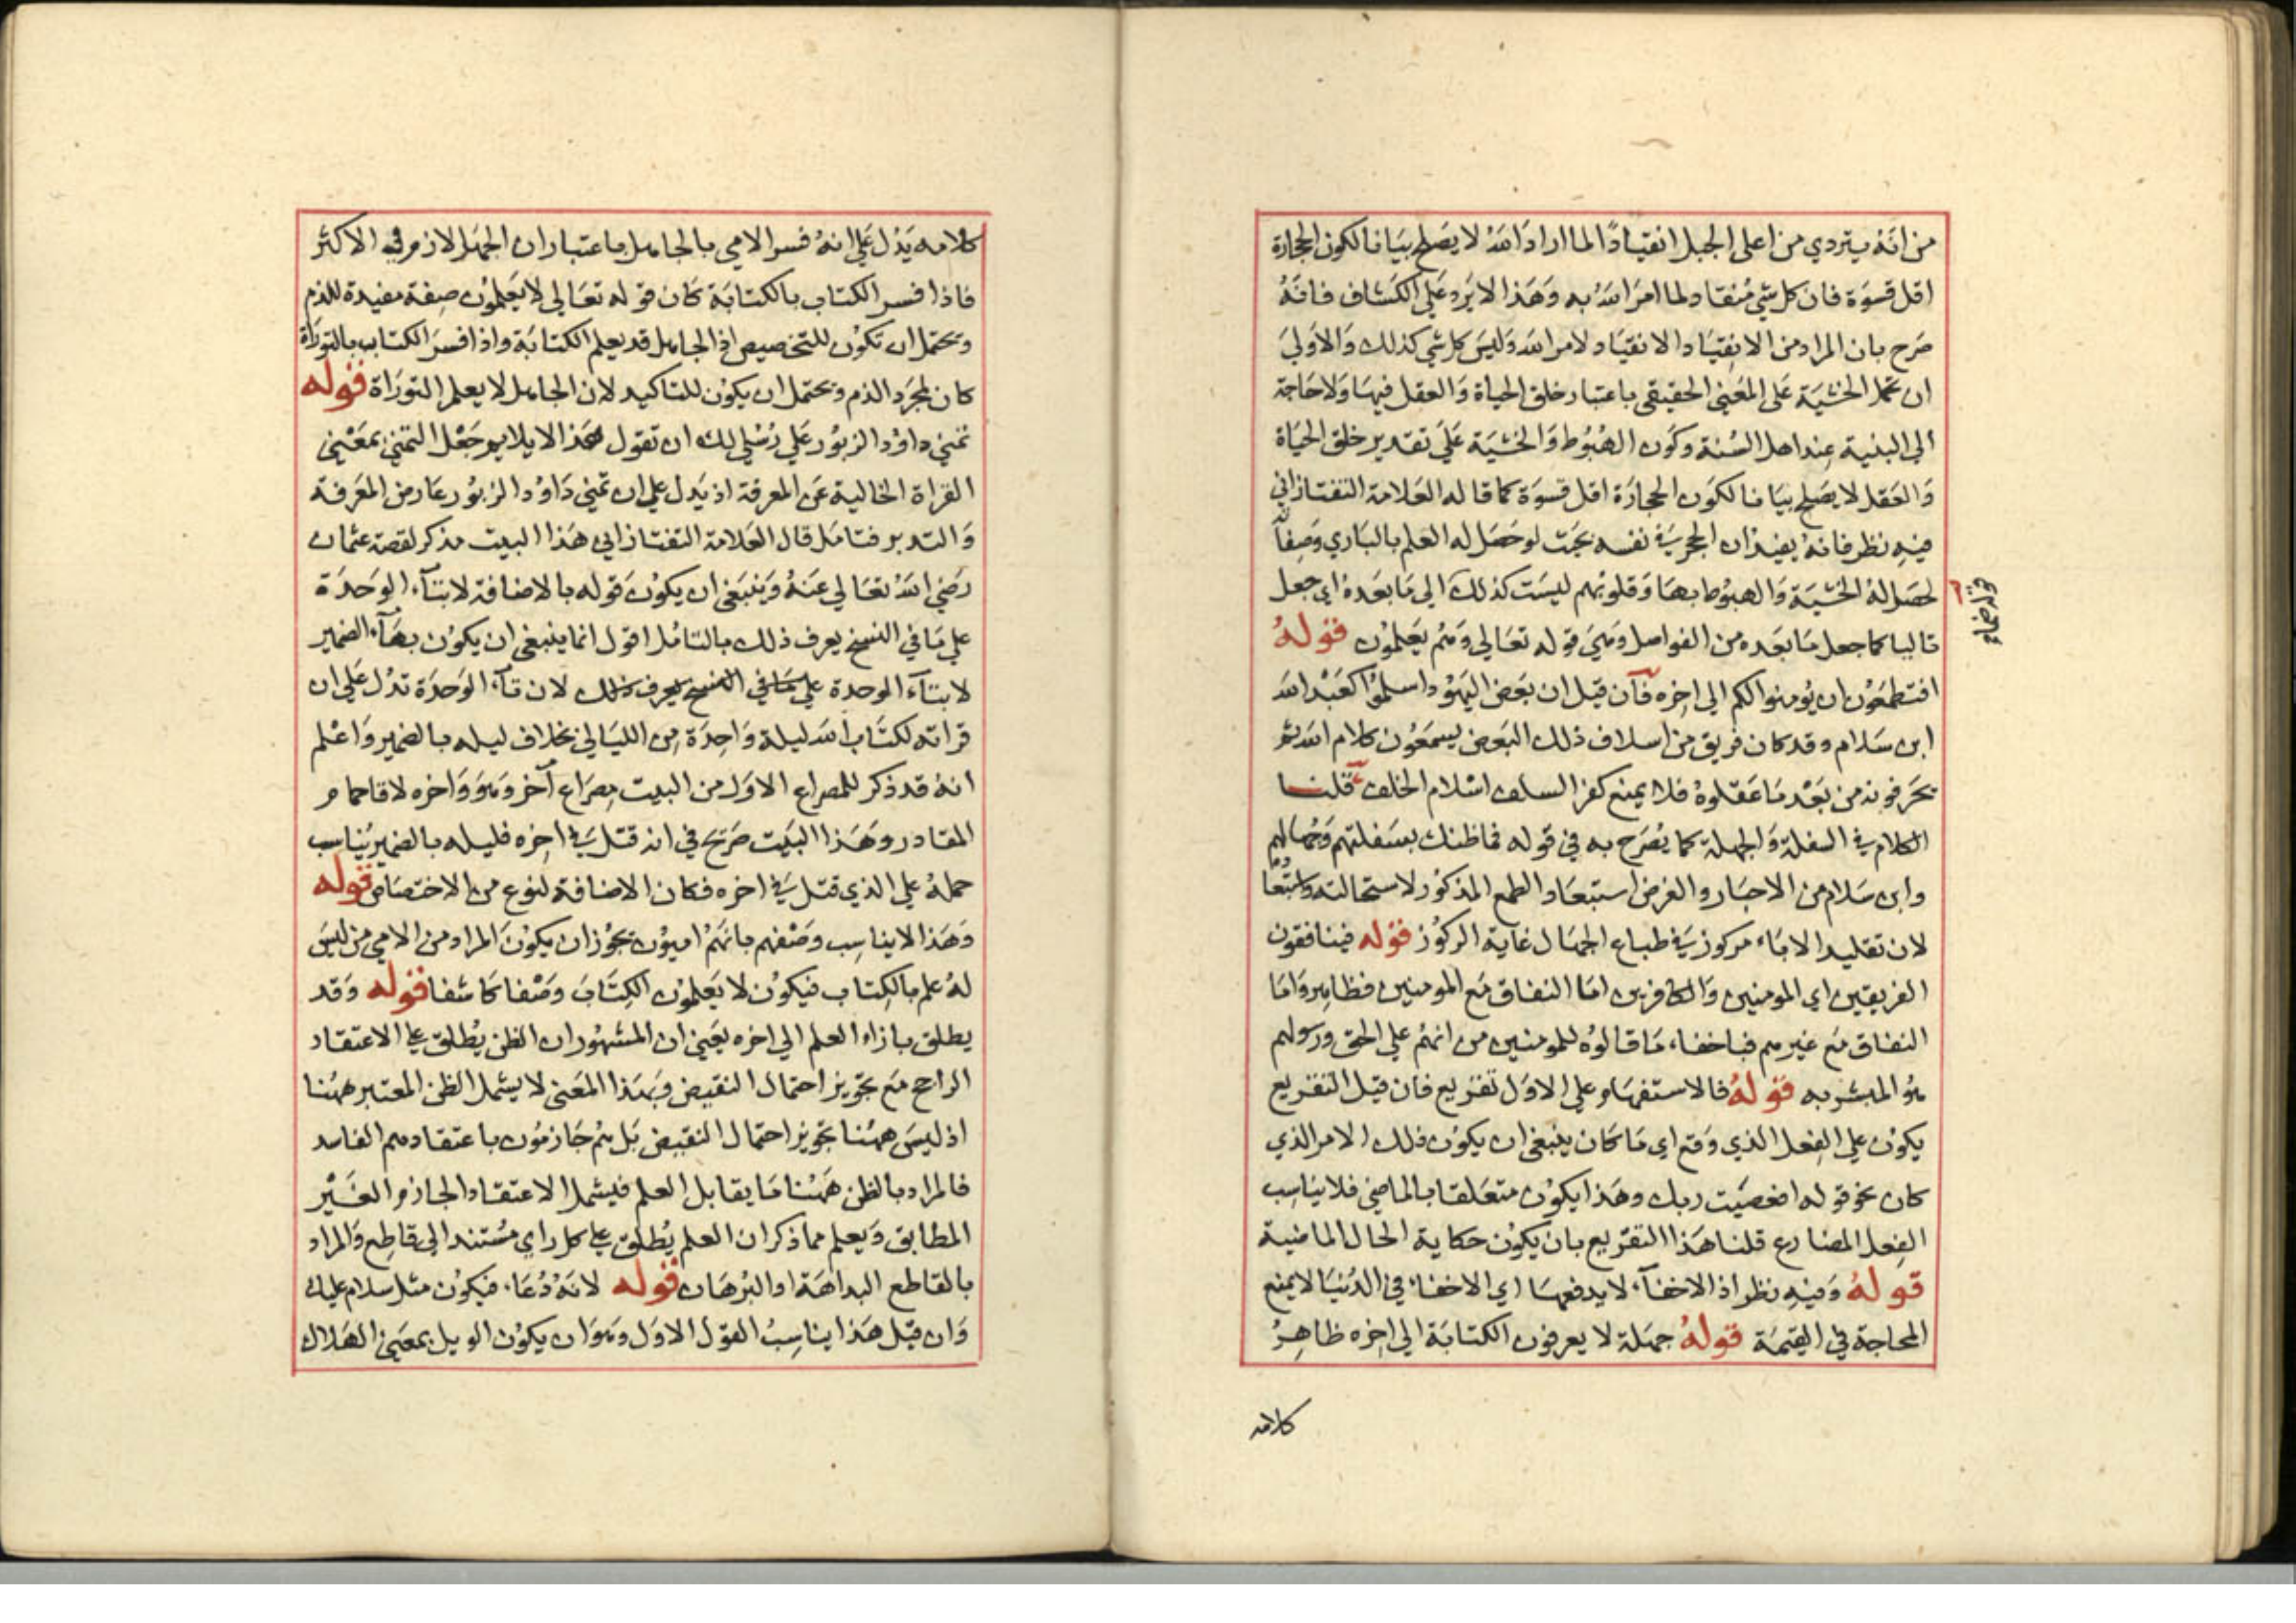 من انه يتردي من اعلى الجبل انقيادًا لما اراد الله لا يصلح بيانا لكون الحجارة
اقل قسوة فان كل شي منقاد ولما امر الله به وهذا لا يرد على الكشاف فانه
صرح بان المراد من الانقياد الانقياد لامر الله وليس كل شي كذلك والاولي
ان تحمل الخشية على المعني الحقيقي باعتبار خلق الحياة والعقل فيها ولا حاجة
الي البنية عند اهل السنة وكون الهبوط والخشية على تقدير خلق الحياة
والعقل لا يصلح بيانا لكون الحجارة اقل قسوة كما قاله العلامة التفتازاني
فيه نظر فانه يفيد ان الحجر في نفسه بحيث لو حصل له العلم بالباري وصفاته
لحصل له الخشية والهبوط بها وقلوبهم ليست كذلك الي ما بعده اي جعل
تاليا كما جعل ما بعده من الفواصل وهي قوله تعالي وهم يعلمون قوله
افتطمعون ان يومنوا لكم الي اخره فان قيل ان بعض اليهود اسلموا كعبد الله
ابن سلام وقد كان فريق من اسلاف ذلك البعض يسمعون كلام الله ثم
يحرفونه من بعد ما عقلوه فلا يمنع كفر السلف اسلام الخلف قلنا
الكلام في السفلة والجهلة كما يصرح به في قوله فما ظنك بسفلتهم وجهالهم
وابن سلام من الاحبار والغرض استبعاد الطمع المذكور لا استحالته واستبعا
لان تقليد الاباء مركوز في طباع الجهال غاية الركوز قوله فينافقون
الفريقين اي المومنين والكافرين اما النفاق مع المومنين فظاهر واما
النفاق مع غيرهم فباخفاء ما قالوه للمومنين من انهم علي الحق ورسولهم
هو المبشر به قوله فالاستفهام علي الاول تقريع فان قيل التقريع
يكون علي الفعل الذي وقع اي ما كان ينبغي ان يكون ذلك الامر الذي
كان نحو قوله اعصيت ربك وهذا يكون متعلقا بالماضي فلا يناسب
الفعل المضارع قلنا هذا التقريع بان يكون حكاية الحال الماضية
قوله وفيه نظر اذ الاخفاء لا يدفعها اي الاخفاء في الدنيا لا يمنع
المحاجة في القيمة قوله جملة لا يعرفون الكتابة الي اخره ظاهر
كلامه
كلامه يدل علي انه فسر الامي بالجاهل باعتبار ان الجهل لازم في الاكثر
فاذا فسر الكتاب بالكتابة كان قوله تعالي لا يعلمون صفة مفيدة للذم
ويحتمل ان تكون للتخصيص اذ الجاهل قد يعلم الكتابة واذا فسر الكتاب بالتوراة
كان لمجرد الذم ويحتمل ان يكون للتاكيد لان الجاهل لا يعلم التوراة قوله
تمني داود الزبور علي رسل لك ان تقول هذا لا يلايم جعل التمني بمعني
القراة الخالية عن المعرفة اذ يدل علي ان تمني داود الزبور عار من المعرفة
والتدبر فتامل قال العلامة التفتازاني هذا البيت مذكر لقصة عثمان
رضي الله تعالي عنه وينبغي ان يكون قوله بالاضافة لا بتاء الوحدة
علي ما في النسخ يعرف ذلك بالتامل اقول انما ينبغي ان يكون بهاء الضمير
لا بتاء الوحدة علي ما في النسخ يعرف ذلك لان تاء الوحدة تدل علي ان
قراته لكتاب الله ليلة واحدة من الليالي بخلاف ليله بالضمير واعلم
انه قد ذكر للمصراع الاول من البيت مصراع آخر وهو واخره لاقا حمام
المقادر وهذا البيت صريح في انه قتل في اخره فليله بالضمير يناسب
حمله علي الذي قتل في اخره فكان الاضافة لنوع من الاختصاص قوله
وهذا لا يناسب وصفهم بانهم اميون يجوز ان يكون المراد من الامي من ليس
له علم بالكتاب فيكون لا يعلمون الكتاب وصفا كاشفا قوله وقد
يطلق بازاء العلم الي اخره يعني ان المشهور ان الظن يطلق علي الاعتقاد
الراجح مع تجويز احتمال النقيض وبهذا المعني لا يشمل الظن المعتبر ههنا
اذ ليس ههنا تجويز احتمال النقيض بل هم جازمون باعتقادهم الفاسد
فالمراد بالظن ههنا ما يقابل العلم فيشمل الاعتقاد الجازم الغير
المطابق ويعلم مما ذكر ان العلم يطلق علي كل راي مستند الي قاطع والمراد
بالقاطع البداهة او البرهان قوله لانه دعاء فيكون مثل سلام عليك
وان قيل هذا يناسب القول الاول وهو ان يكون الويل بمعني الهلاك